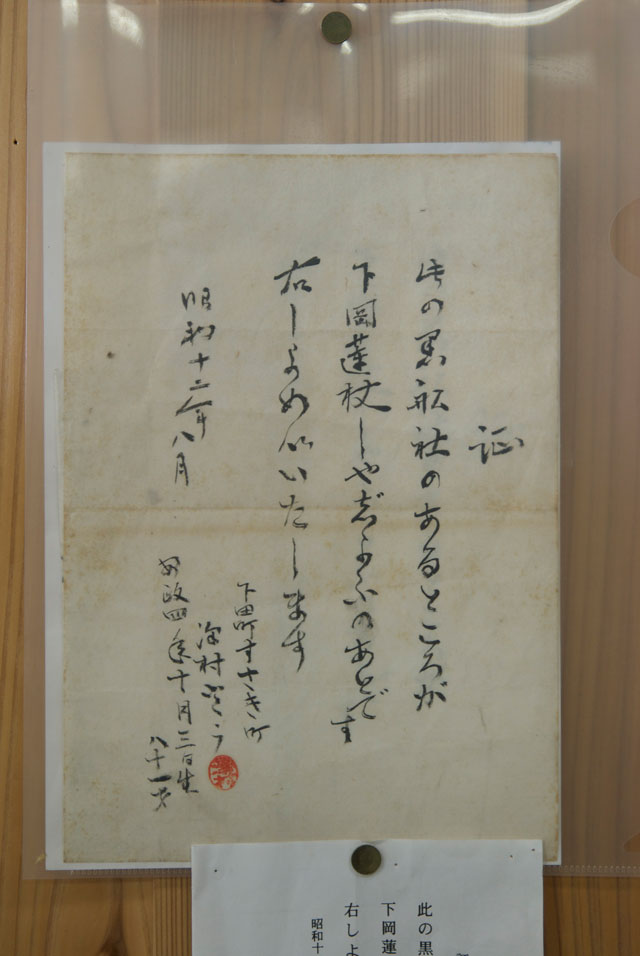 証
此の黒舩社のあるところが
下岡蓮杖しやぢよふのあとです
右しよめいいたします
昭和十二年八月
下田町すさき町
村
安政四年十月三日生
八十一才
此の黒
下岡蓮
右しよ
昭和十